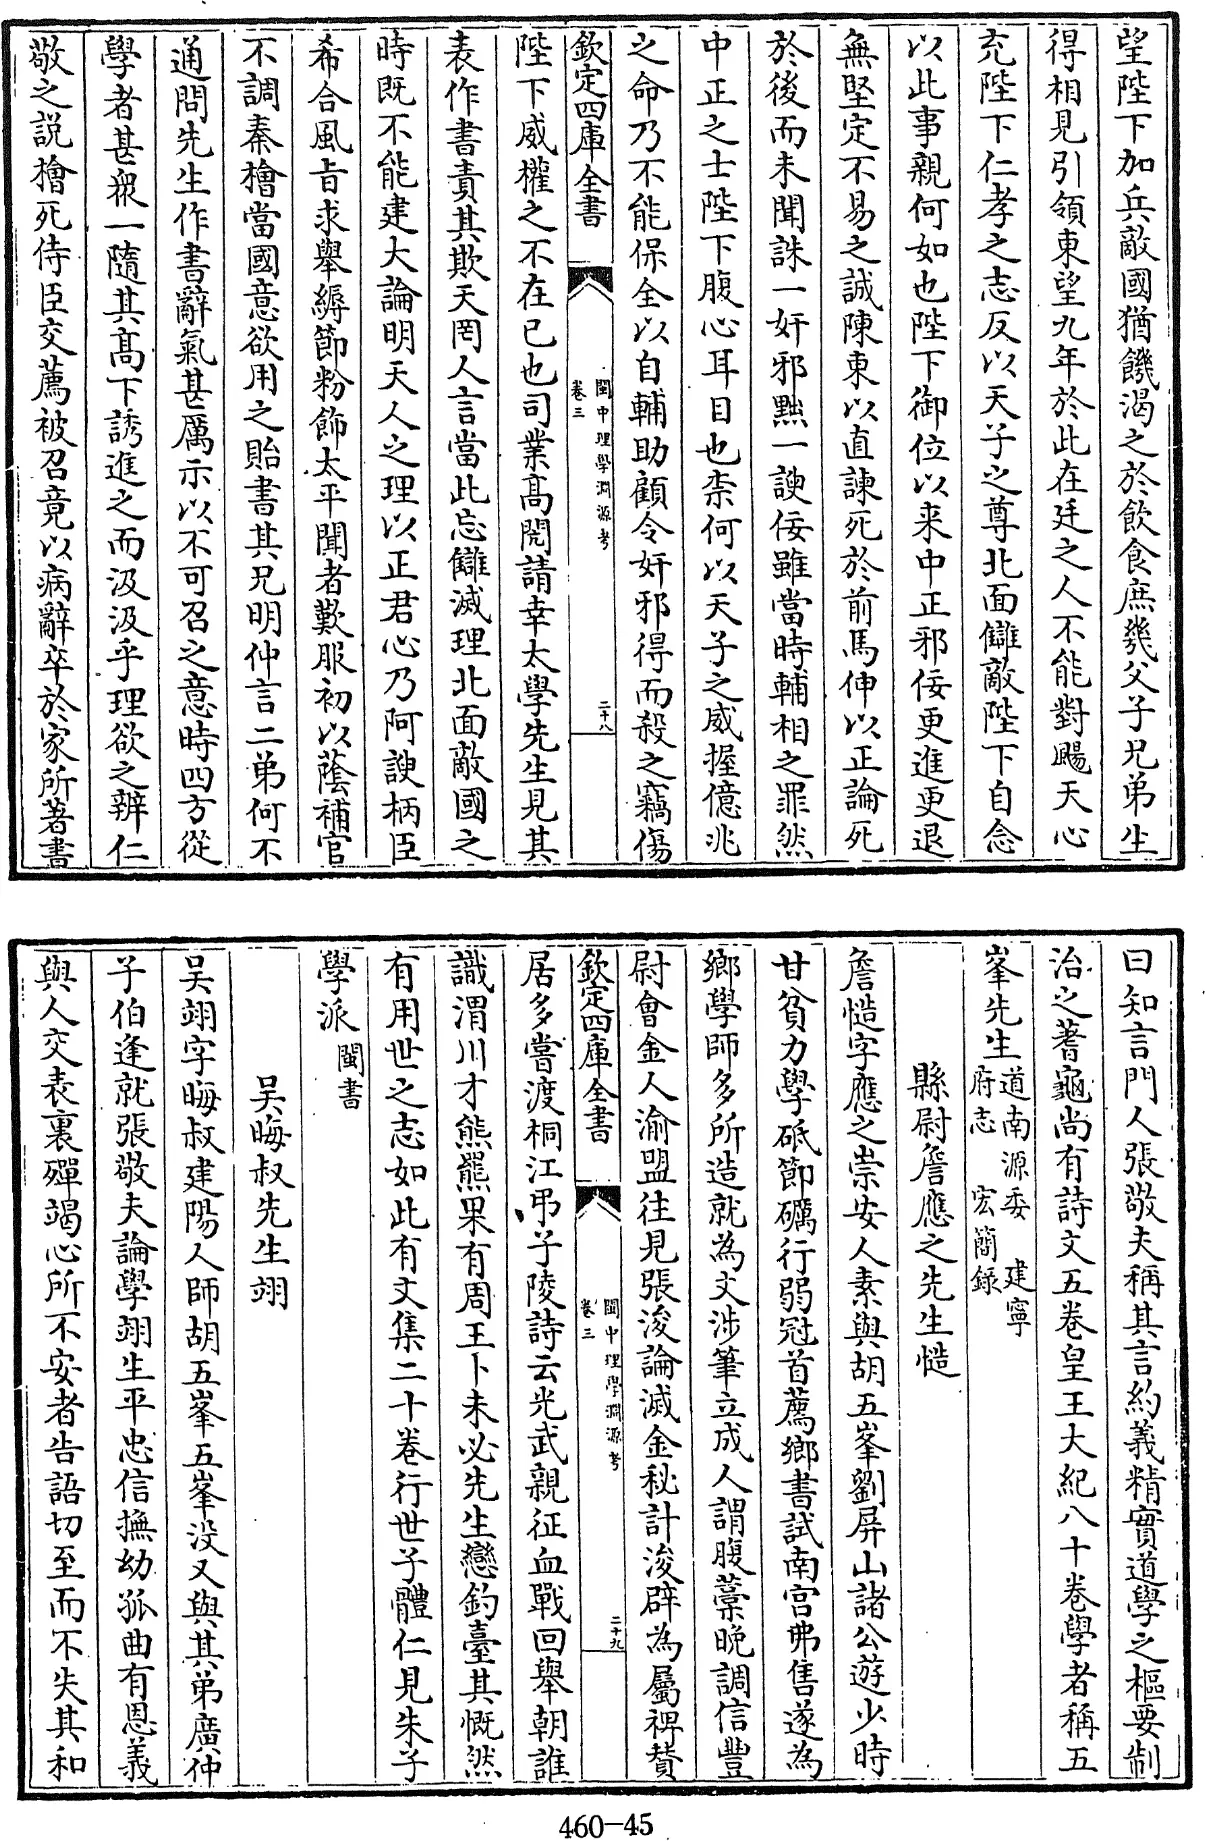 望陛下加兵敵國猶饑渴之於飲食庶幾父子兄弟生
得相見引領東望九年於此在廷之人不能對颺天心
充陛下仁孝之志反以天子之尊北面讎敵陛下自念
以此事親何如也陛下御位以来中正邪佞更進更退
無堅定不易之誠陳東以直諫死於前馬伸以正論死
於後而未聞誅一奸邪黜一諛佞雖當時輔相之罪然
中正之士陛下腹心耳目也柰何以天子之威握億兆
之命乃不能保全以自輔助顧令奸邪得而殺之竊傷
欽定四庫全書
閩中理學淵源考
卷三
二十八
陛下威權之不在已也司業髙閌請幸太學先生見其
表作書責其欺天罔人言當此忘讎滅理北面敵國之
時既不能建大論明天人之理以正君心乃阿諛柄臣
希合風旨求舉縟節粉飾太平聞者歎服初以蔭補官
不調秦檜當國意欲用之貽書其兄明仲言二弟何不
通問先生作書辭氣甚厲示以不可召之意時四方從
學者甚衆一隨其髙下誘進之而汲汲乎理欲之辨仁
敬之説檜死侍臣交薦被召竟以病辭卒於家所著書
曰知言門人張敬夫稱其言約義精實道學之樞要制
治之蓍龜尚有詩文五巻皇王大紀八十巻學者稱五
峯先生道南源委 建寧
府志 宏簡錄
縣尉詹應之先生慥
詹慥字應之崇安人素與胡五峯劉屏山諸公遊少時
甘貧力學砥節礪行弱冠首薦鄉書試南宫弗售遂為
鄉學師多所造就為文渉筆立成人謂腹藁晩調信豐
尉會金人渝盟往見張浚論滅金秘計浚辟為屬裨贊
欽定四庫全書
閩中理學淵源考
卷三
二十九
居多嘗渡桐江弔子陵詩云光武親征血戰回舉朝誰
識渭川才熊羆果有周王卜未必先生戀釣臺其慨然
有用世之志如此有文集二十巻行世子體仁見朱子
學派閩書
吴晦叔先生翊
吴翊字晦叔建陽人師胡五峯五峯没又與其弟廣仲
子伯逢就張敬夫論學翊生平忠信撫幼孤曲有恩義
與人交表裏殫竭心所不安者告語切至而不失其和
460-45